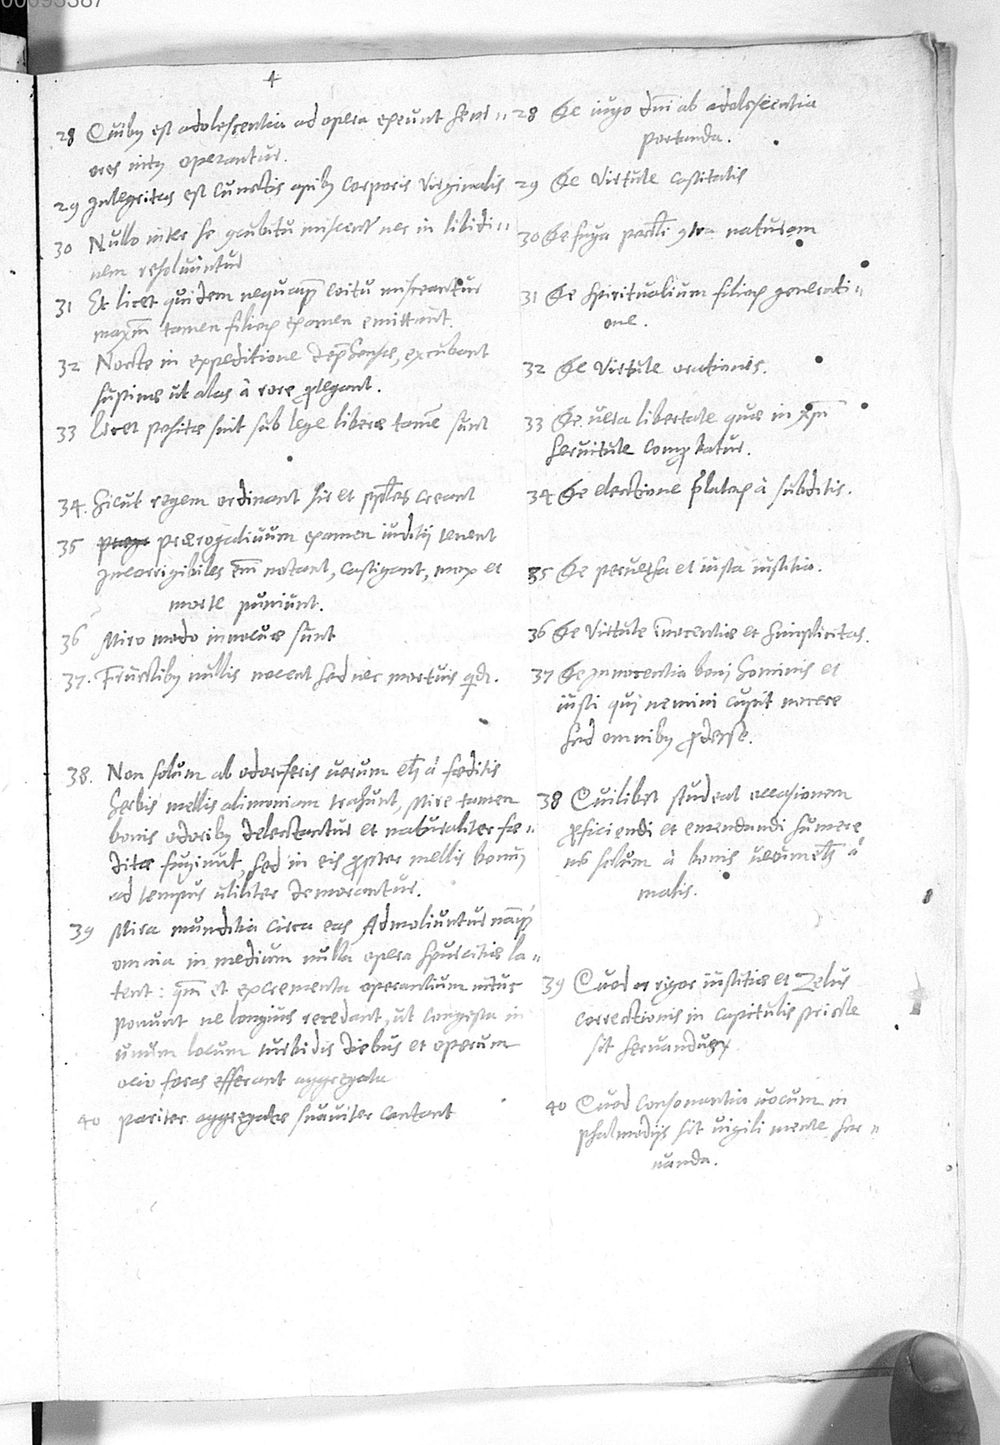 4
28 Quiby est adolescentia ad opera exeunt seni=
ores intꝰ operantur.
29 Integritas est cunctis apiby corporis virginalis
30 Nullo inter se concubitu miscent nec in libidi=
nem resoluuntur
31 Et licet quidem nequaqȝ coitu misceantur
tamen filioꝝ examen emittunt.
32 Nocte in expeditione, excubant
supinæ ut alas à rore ꝓtegant.
33 Licet positæ sint sub lege liberæ tamē sunt
34. Sicut regem ordinant sic et creant
35 prærogatiuum examen iuditij tenent
Incorrigibiles notant, castigant, mox et
morte puniunt.
36 Miro modo innocuæ sunt
37. Fructiby nullis nocent sed nec mortuis
38. Non solum ab odoriferis uerum etȝ à fœditis
herbis mellis alimoniam trahunt, Mire tamen
bonis odoriby delectantur et naturaliter fæ=
ditæ fugiunt, sed in eis ꝓpter mellis bonuȝ
ad tempus utiliter demorantur.
39 Mira munditia circa eas Admoliuntur
omnia in medium nulla opera spurcitiæ la=
tent: et excrementa operantium intus
ponunt ne longius recedant, ut congesta in
unum locum turbidis diebus et operum
ocio foras efferant aggregata
40 pariter aggregatæ suauiter cantant
28 De iugo dn̄i ab adolescentia
portanda.
29 De virtute castitatis
30 De fuga contra naturam
31 De spiritualium filioꝝ generati=
one.
32 De virtute orationis.
33 De uera libertate quæ in
seruitute comꝑatur.
34 De electione p̄latoꝝ à subditis.
35 De et iusta iustitia.
36 De virtute īnocentiæ et simplicitas.
37 De Innocentia bonj hominis et
iusti quj nemini cupit nocere
sed omniby ꝓdesse.
38 Quilibet studeat occasionem
ꝓficiendi et emendandi sumere
nō solum à bonis uerum etȝ à
malis.
39 Quod rigor iustitiæ et Zelus
correctionis in capitulis
sit seruandus.
40 Quod consonantia uocum in
psalmodijs sit uigili mente ser=
uanda.